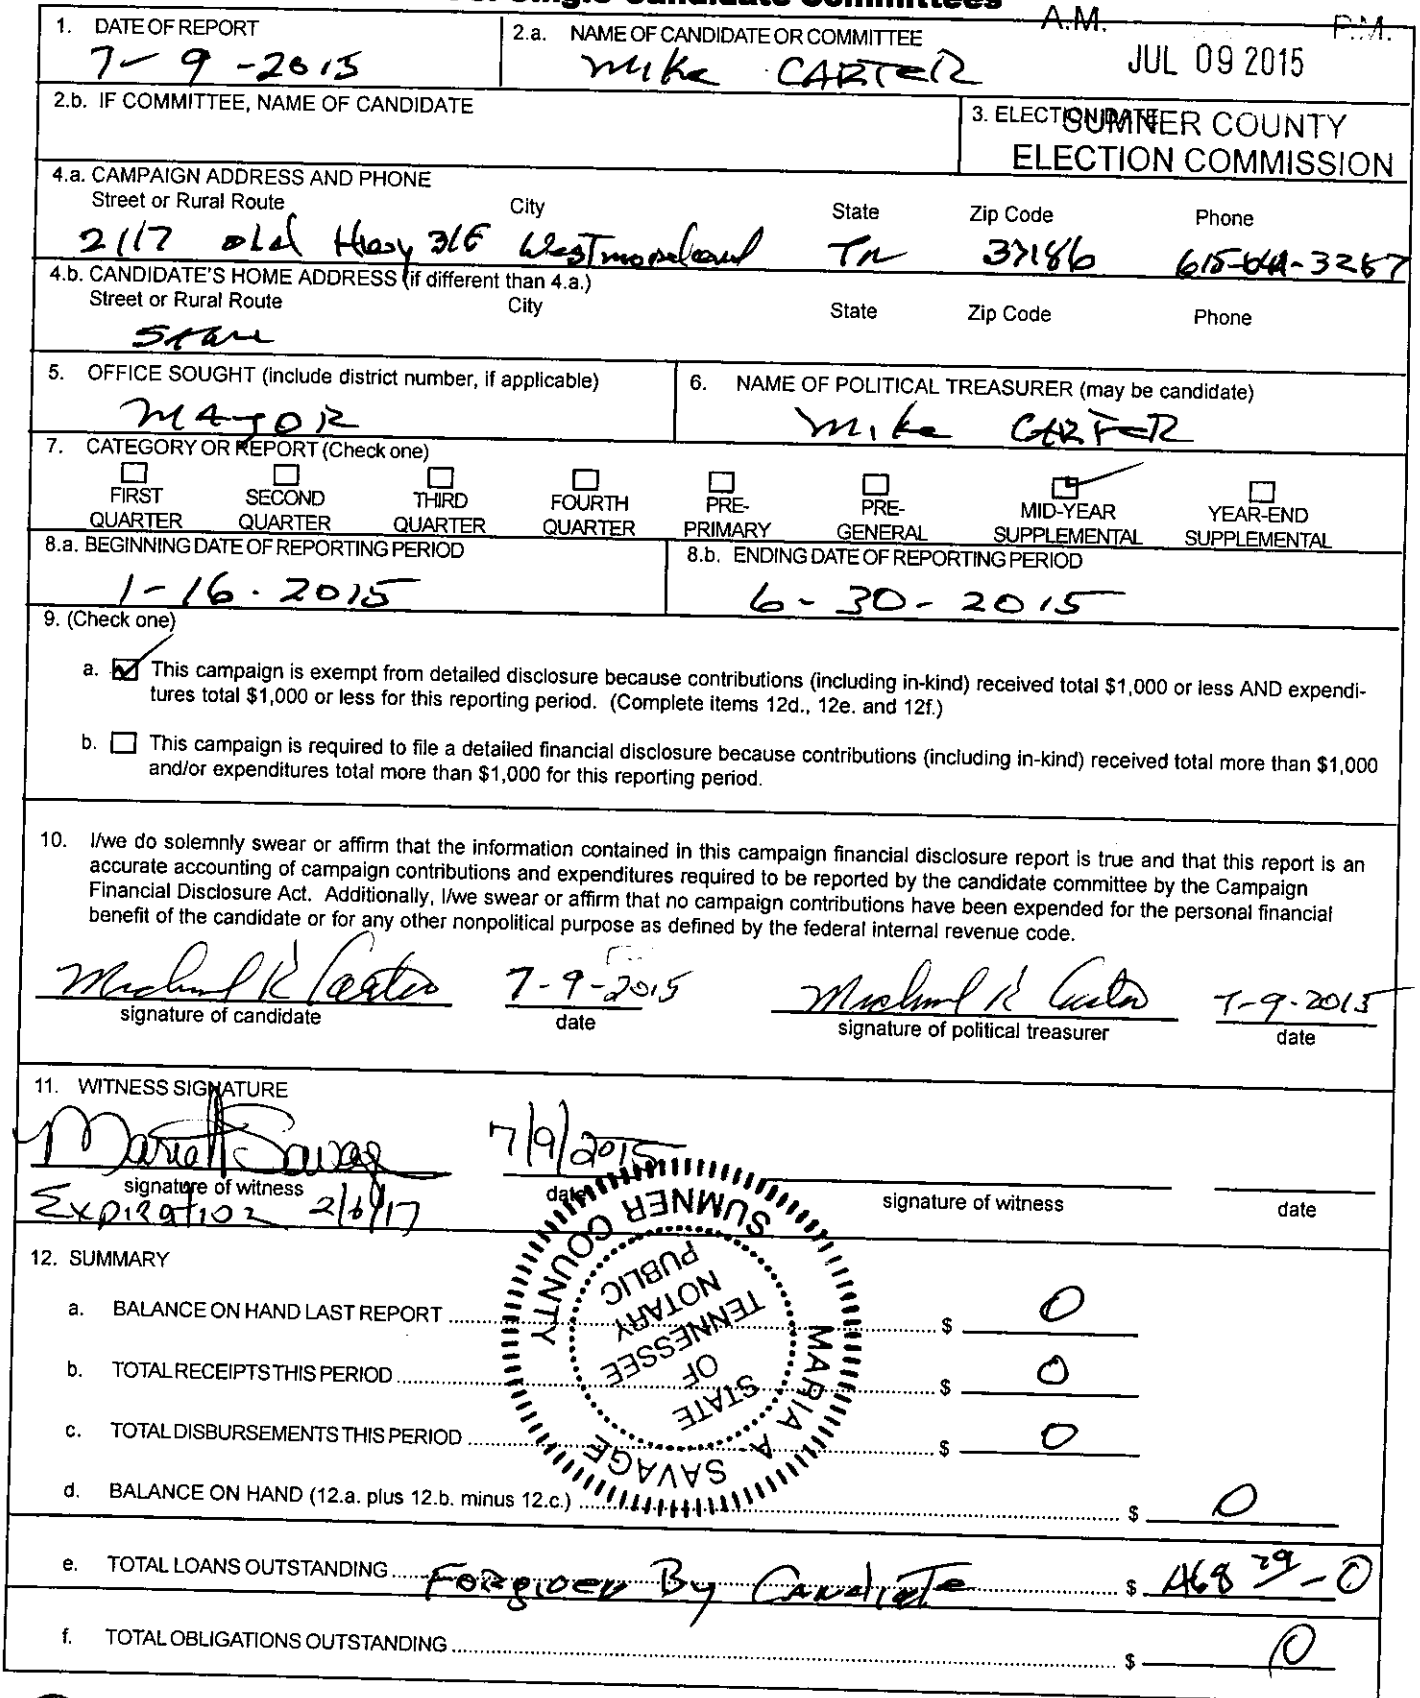 A.M. P.M.
1. DATE OF REPORT
7-9-2015
2.a. NAME OF CANDIDATE OR COMMITTEE
Mike CARTER
JUL 09 2015
2.b. IF COMMITTEE, NAME OF CANDIDATE
3. ELECTION DATE
SUMNER COUNTY
ELECTION COMMISSION
4.a. CAMPAIGN ADDRESS AND PHONE
Street or Rural Route City State Zip Code Phone
2117 old Hwy 31E Westmoreland Tn 37186
4.b. CANDIDATE'S HOME ADDRESS (if different than 4.a.)
Street or Rural Route City State Zip Code Phone
5. OFFICE SOUGHT (include district number, if applicable)
MAJOR
6. NAME OF POLITICAL TREASURER (may be candidate)
Mike CARTER
7. CATEGORY OR REPORT (Check one)
FIRST QUARTER
SECOND QUARTER
THIRD QUARTER
FOURTH QUARTER
PRE-PRIMARY
PRE-GENERAL
MID-YEAR SUPPLEMENTAL
YEAR-END SUPPLEMENTAL
8.a. BEGINNING DATE OF REPORTING PERIOD
1-16-2015
8.b. ENDING DATE OF REPORTING PERIOD
6-30-2015
9. (Check one)
a. This campaign is exempt from detailed disclosure because contributions (including in-kind) received total $1,000 or less AND expendi-
tures total $1,000 or less for this reporting period. (Complete items 12d., 12e. and 12f.)
b. This campaign is required to file a detailed financial disclosure because contributions (including in-kind) received total more than $1,000
and/or expenditures total more than $1,000 for this reporting period.
10. I/we do solemnly swear or affirm that the information contained in this campaign financial disclosure report is true and that this report is an
accurate accounting of campaign contributions and expenditures required to be reported by the candidate committee by the Campaign
Financial Disclosure Act. Additionally, I/we swear or affirm that no campaign contributions have been expended for the personal financial
benefit of the candidate or for any other nonpolitical purpose as defined by the federal internal revenue code.
Michael R Carter 7-9-2015 Michael R Carter 7-9-2015
signature of candidate date signature of political treasurer date
11. WITNESS SIGNATURE
Maria A Savage 7/9/2015
signature of witness date signature of witness date
Expiration 2/6/17
SUMNER COUNTY
MARIA A SAVAGE
STATE
OF
TENNESSEE
NOTARY
PUBLIC
12. SUMMARY
a. BALANCE ON HAND LAST REPORT $ 0
b. TOTAL RECEIPTS THIS PERIOD $ 0
c. TOTAL DISBURSEMENTS THIS PERIOD $ 0
d. BALANCE ON HAND (12.a. plus 12.b. minus 12.c.) $ 0
e. TOTAL LOANS OUTSTANDING Forgiven By Candiate $ 468 - 0
f. TOTAL OBLIGATIONS OUTSTANDING $ 0